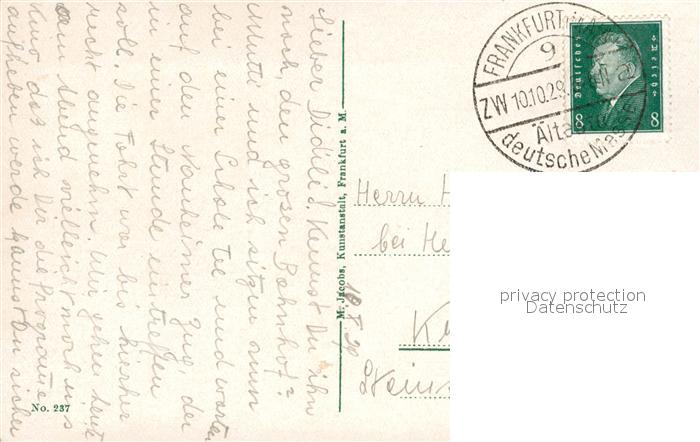 Lieber Dickile! Kennst Du ihn
noch, den grosen Bahnhof?
Mutti und ich sitzen nun
bei einer Schale Tee und warten
auf den Nauheimer Zug, der
in einer Stunde eintreffen
soll. Die Fahrt war bis hierher
recht angenehm. Wir gehen heute
Abend vielleicht noch ins
Kino das ich Dir die Programme
aufheben werde kannst Du sicher
No. 237
M. Jacobs, Kunstanstalt, Frankfurt a. M.
10 X 29
FRANKFURT
9
ZW 10.10.29
Älteste
deutsche Mes
Deutsches Reich
8 8
Herrn H
bei He
K
Steins
privacy protection
Datenschutz